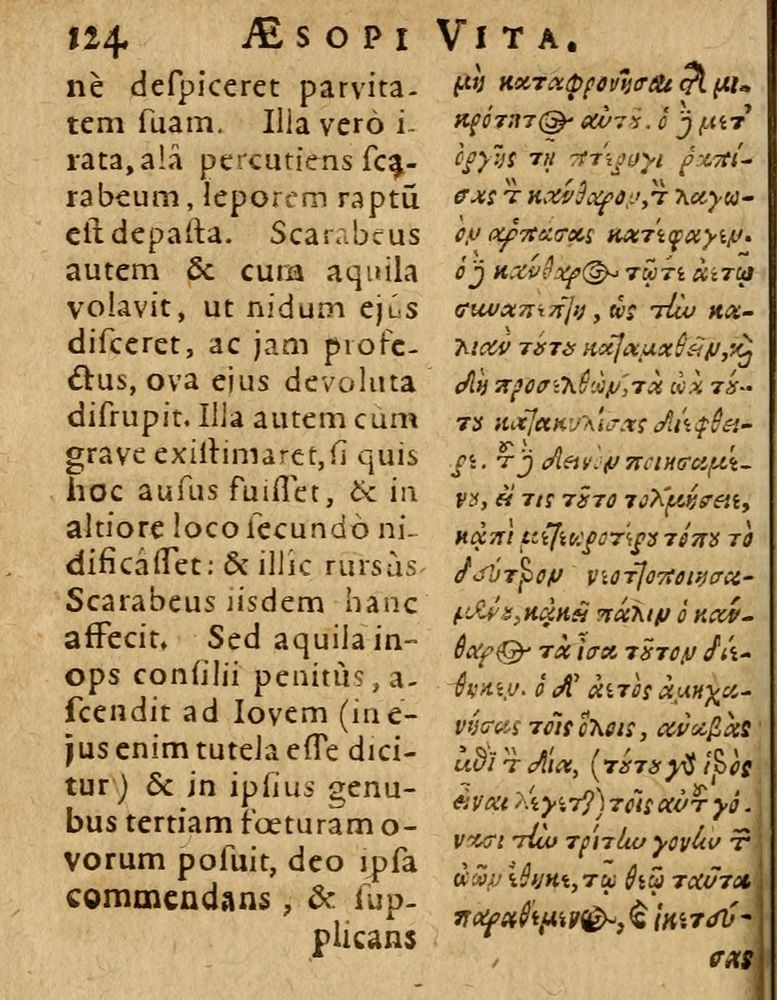 124 ÆSOPI VITA.
nè deſpiceret parvita-
tem ſuam. Illa verò i-
rata, alâ percutiens ſca-
rabeum, leporem raptũ
eſt depaſta. Scarabeus
autem & cum aquila
volavit, ut nidum ejus
diſceret, ac jam profe-
ctus, ova ejus devoluta
diſrupit. Illa autem cùm
grave exiſtimaret, ſi quis
hoc auſus fuiſſet, & in
altiore loco ſecundò ni-
dificâſſet: & illîc rursùs
Scarabeus iisdem hanc
affecit. Sed aquila in-
ops conſilii penitùs, a-
ſcendit ad Iovem (in e-
jus enim tutela eſſe dici-
tur) & in ipſius genu-
bus tertiam fœturam o-
vorum poſuit, deo ipſa
commendans, & ſup-
plicans
μὴ καταφρονῆσαι τ̃ μι-
κρότητ(ος) αὐτȣ. ὁ ȷ̀ μετ'
ὀργῆς τῇ πτέρυγι ῥαπί-
σας τ̀ κάνθαρον, τ̀ λαγω-
ὸν ἁρπάσας κατέφαγεν.
ὁ ȷ̀ κάνθαρ(ος) τῷτε ἀετῷ
συναπέπτη, ὡς τὴν κα-
λιὰν τούτου καταμαθεῖν, κ̀
δὴ προσελθὼν, τὰ ὠὰ τού-
του κατακυλίσας διέφθει-
ρε. τ̃ ȷ̀ δεινὸν ποιησαμέ-
νȣ, εἴ τις τοῦτο τολμήσειε,
κἀπὶ μετεωροτέρȣ τόπȣ τὸ
δεύτερον νεοττοποιησα-
μένȣ, κἀκεῖ πάλιν ὁ κάν-
θαρ(ος) τὰ ἶσα τοῦτον διέ-
θηκεν. ὁ δ' ἀετὸς ἀμηχα-
νήσας τοῖς ὅλοις, ἀναβὰς
ἐπὶ τ̀ Δία, (τούτου γὸ ἱερὸς
εἶναι λέγετ(αι)) τοῖς αὐτ̃ γό-
νασι τὴν τρίτην γονὴν τ̃
ὠῶν ἔθηκε, τῷ θεῷ ταῦτα
παραθέμεν(ος), κ̀ ἱκετεύ-
σας